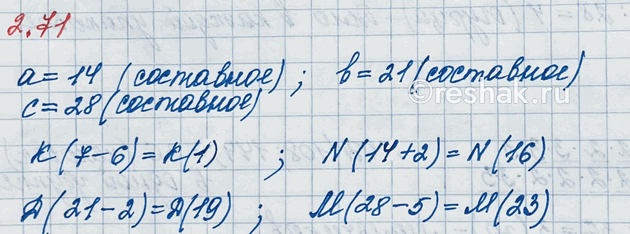 2.71
a = 14 (составное) ; b = 21 (составное)
c = 28 (составное)
reshak.ru
K (7-6) = K(1) ; N (14+2) = N (16)
Д (21-2) = Д(19) ; M (28-5) = M(23)